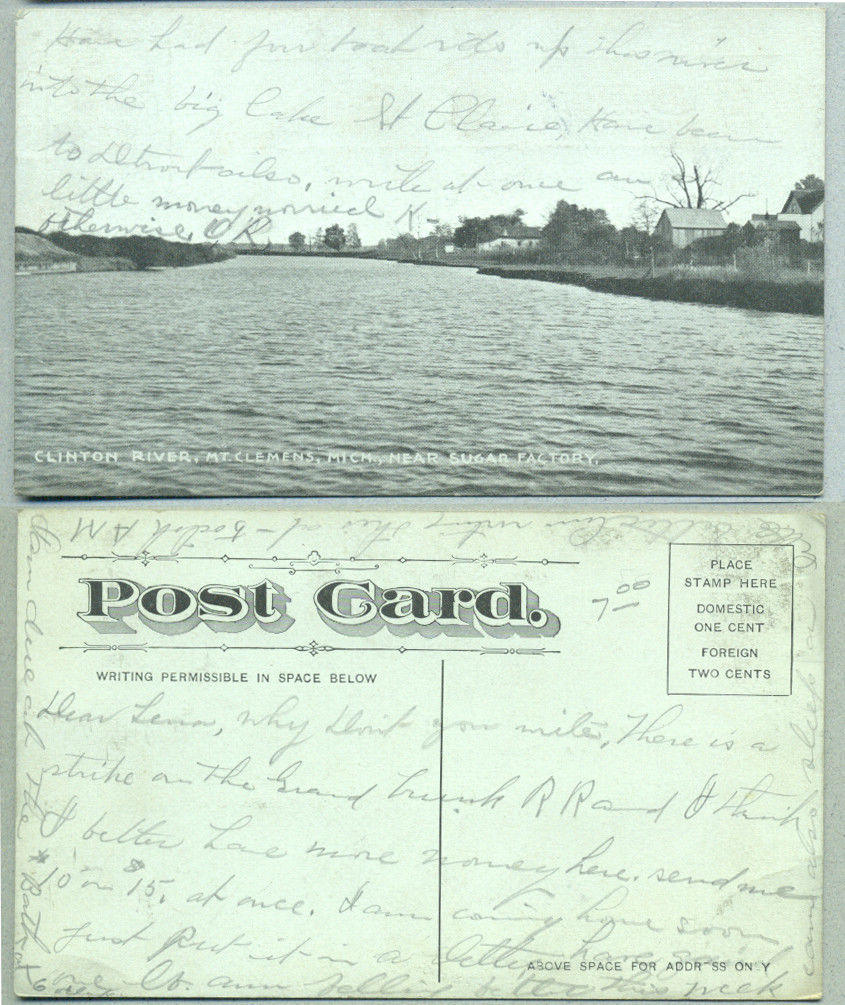 Have had four boat rides up this river
into the big Lake St Claire, Have been
to Detroit also, write at once am
little money worried
otherwise O.K.
CLINTON RIVER, MT. CLEMENS, MICH., NEAR SUGAR FACTORY.
am writing this at 8 o'clock AM
Post Card.
7 00
PLACE
STAMP HERE
DOMESTIC
ONE CENT
FOREIGN
TWO CENTS
WRITING PERMISSIBLE IN SPACE BELOW
Dear Lena, why Don't you write, There is a
strike on the Grand Trunk R R and I think
I better have more money here. send me
$10 or $15, at once. I am coming home soon
Just put it in a letter have
am feeling this week
ABOVE SPACE FOR ADDRESS ONLY
can also sleep